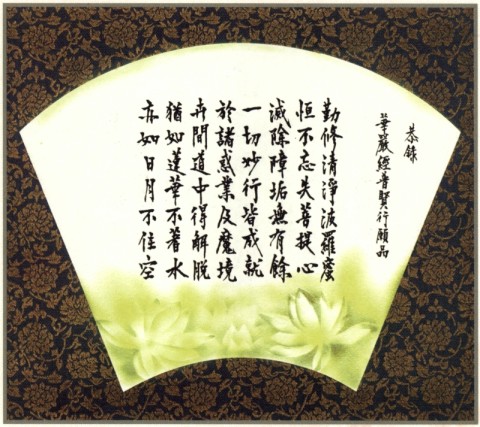 恭錄
華嚴經普賢行願品
勤修清淨波羅蜜
恒不忘失菩提心
滅除障垢無有餘
一切妙行皆成就
於諸惑業及魔境
世間道中得解脫
猶如蓮華不著水
亦如日月不住空